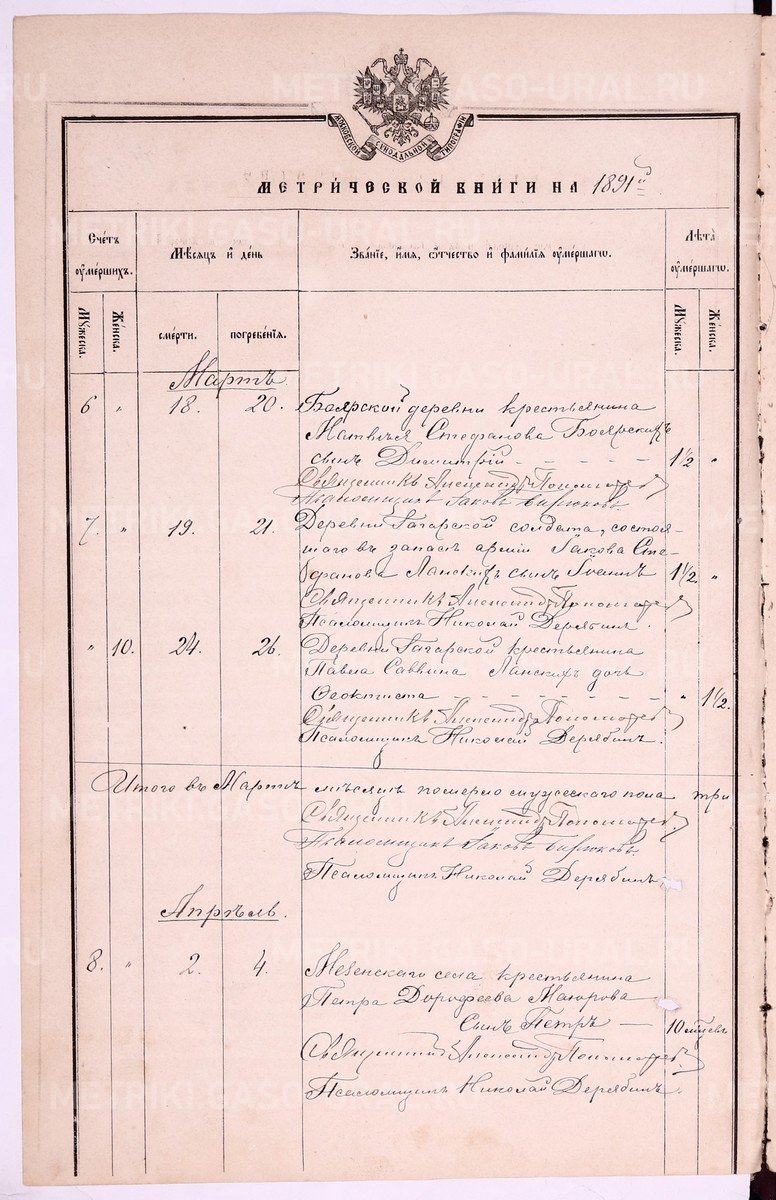 МОСКОВСКОЙ СѴНОДАЛЬНОЙ ТИПОГРАФІИ
МЕТРИ́ЧЕСКОЙ КНИ́ГИ НА 1891й
Сче́тъ ᲂу҆ме́ршихъ.
Мѣ́сяцъ и҆ де́нь
Зва́нїе, и҆́мя, ѻ҆́тчество и҆ фами́лїя ᲂу҆ме́ршагѡ.
Лѣта̀ ᲂу҆ме́ршагѡ.
Мꙋ́жеска.
Же́нска.
сме́рти.
погребе́нїя.
Мꙋ́жеска.
Же́нска.
Мартъ.
6 „ 18. 20. Боярской деревни крестьянина
Матвѣя Стефанова Боярскихъ
сынъ Димитрій 1½ „
Священникъ Александръ Пономаревъ
Псаломщикъ Іаковъ Бирюковъ
7. „ 19. 21. Деревни Гагарской солдата, состоя-
щаго въ запасѣ арміи Іакова Сте-
фанова Ланскихъ сынъ Іоаннъ 1½ „
Священникъ Александръ Пономаревъ
Псаломщикъ Николай Дерябинъ.
„ 10. 24. 26. Деревни Гагарской крестьянина
Павла Саввина Ланскихъ дочь
Ѳеоктиста „ 1½.
Священникъ Александръ Пономаревъ
Псаломщикъ Николай Дерябинъ.
Итого въ Мартѣ мѣсяцѣ померло мужескаго пола три
Священникъ Александръ Пономаревъ
Псаломщикъ Іаковъ Бирюковъ.
Псаломщикъ Николай Дерябинъ.
Апрѣль.
8. „ 2. 4. Мезенскаго села крестьянина
Петра Дорофеева Маюрова
сынъ Петръ 10 мѣсяцевъ
Священникъ Александръ Пономаревъ
Псаломщикъ Николай Дерябинъ.
METRIKI.GASO-URAL.RU